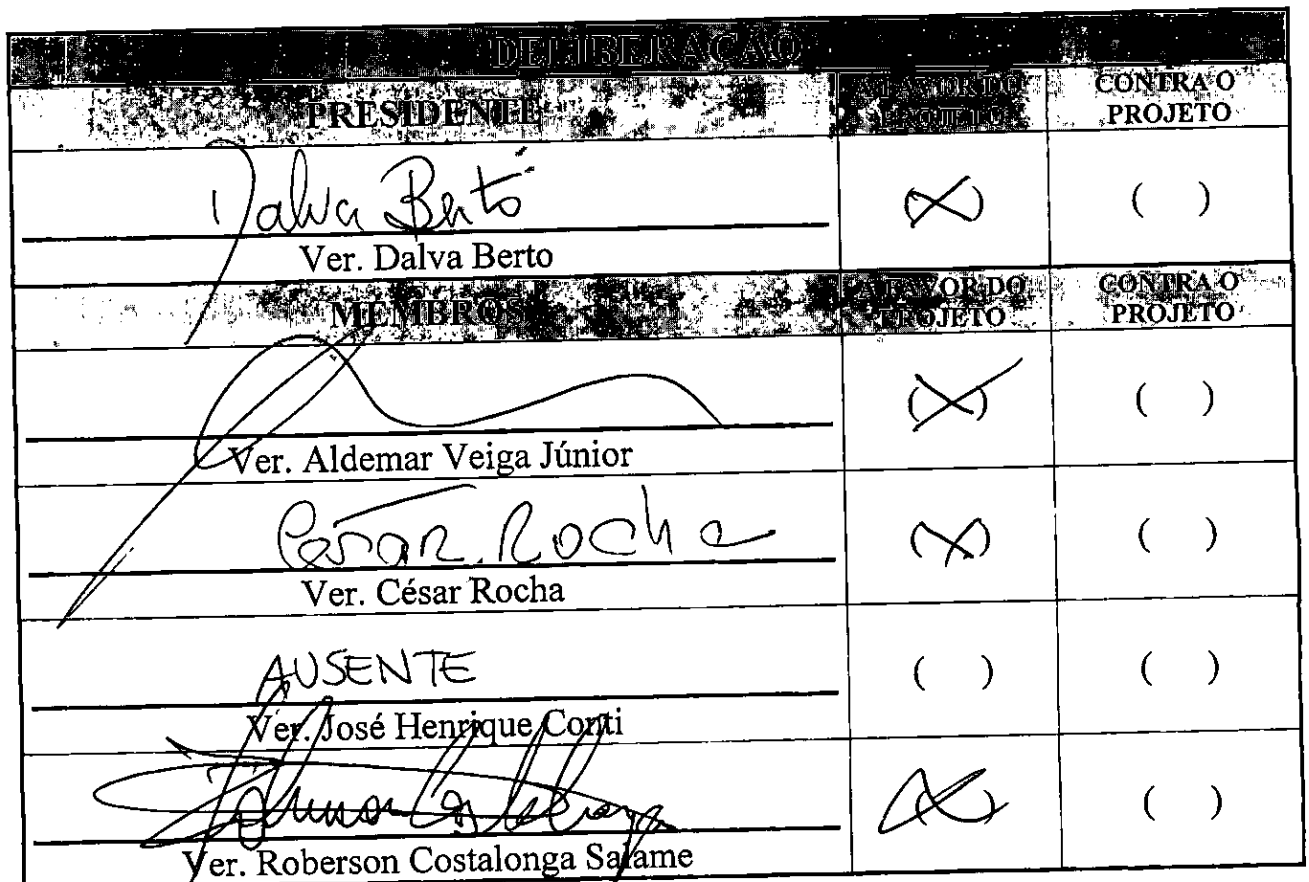 DELIBERAÇÃO
PRESIDENTE
A FAVOR DO PROJETO
CONTRA O PROJETO
Dalva Berto
(X)
( )
Ver. Dalva Berto
MEMBROS
A FAVOR DO PROJETO
CONTRA O PROJETO
(X)
( )
Ver. Aldemar Veiga Júnior
César Rocha
(X)
( )
Ver. César Rocha
AUSENTE
( )
( )
Ver. José Henrique Conti
(X)
( )
Ver. Roberson Costalonga Salame